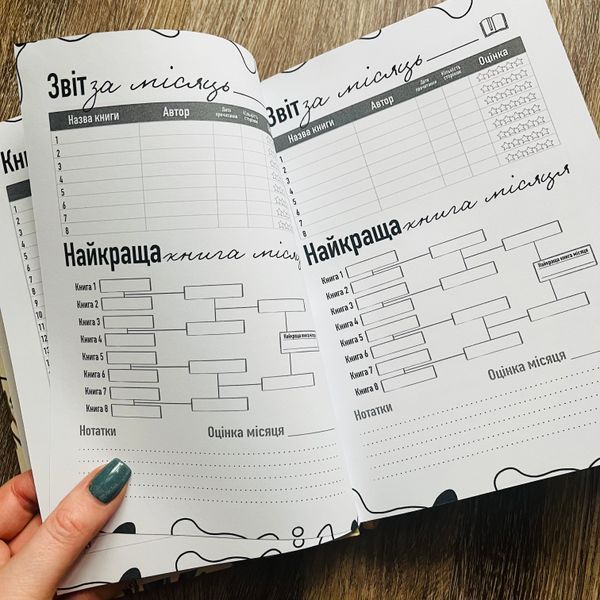 Кни
1
2
3
4
5
6
7
8
9
10
11
12
13
Звіт за місяць
Назва книги Автор Дата прочитання Кількість сторінок
1
2
3
4
5
6
7
8
Найкраща книга місяця
Книга 1
Книга 2
Книга 3
Книга 4
Книга 5
Книга 6
Книга 7
Книга 8
Найкраща книга місяця
Нотатки Оцінка місяця
8
Звіт за місяць
Назва книги Автор Дата прочитання Кількість сторінок Оцінка
1
2
3
4
5
6
7
8
Найкраща книга місяця
Книга 1
Книга 2
Книга 3
Книга 4
Книга 5
Книга 6
Книга 7
Книга 8
Найкраща книга місяця
Оцінка місяця
Нотатки